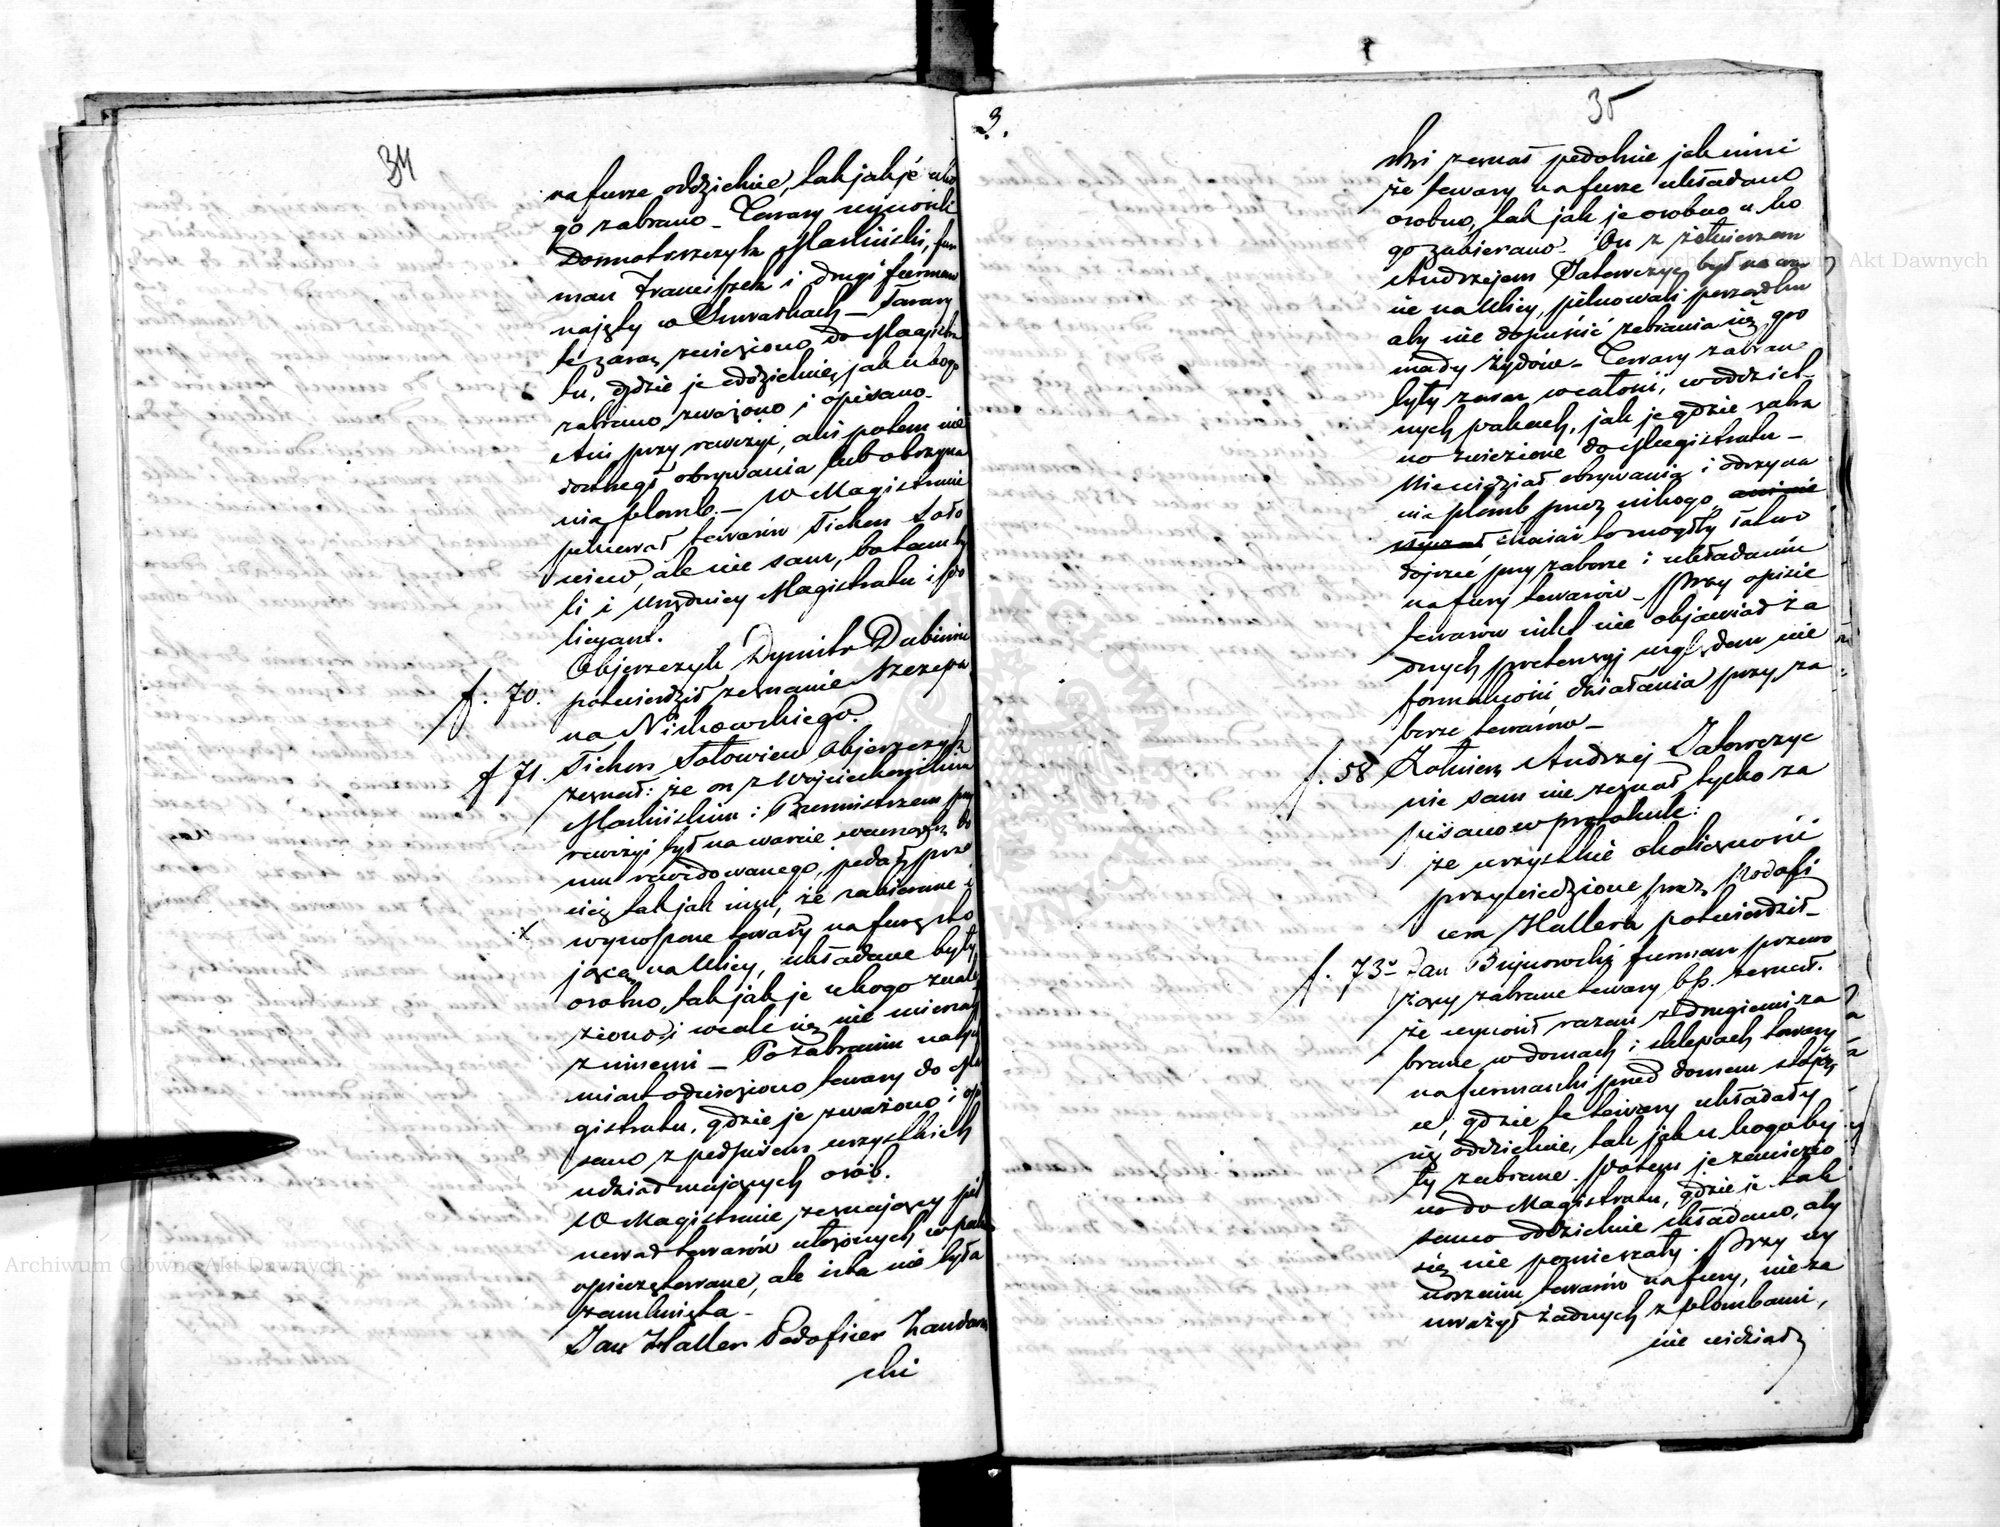 34
na furze oddzielnie, tak jak je u ko
go zabrano – Towary wynosili
Domotorzczyk Markiński, fur
man Franciszek i drugi furman
najęty w Suwałkach – Towary
te zaraz zwieziono do Magistra
tu, gdzie je oddzielnie, jak u kogo
zabrano, zważono i opisano.
Ani przy rewizyi, ani potem nie
obrywania lub obrzyna
nia plomb. – W Magistracie
pilnował towarów Tichon Soło
wiew, ale nie sam, bo tam by
li i Urzędnicy Magistratu i po
licyant.
f. 70. Objezczyk Dymitr Dubinin
potwierdził zeznanie Szczepa
na Nichowskiego.
f 71. Tichon Sołowiew Objezczyk
zeznał: że on z Wojciechowskim
Markińskim i Burmistrzem przy
rewizyi był na warcie wewnątrz do
mu rewidowanego, podał prze
cież tak jak inni, że zabierane i
x wynoszone towary na furę sto
jącą na Ulicy, układane były
osobno, tak jak je u kogo znale
ziono i wcale się nie mieszały
z innemi – Po zabraniu natych
miast odwieziono towary do Ma
gistratu, gdzie je zważono i opi
sano z podpisem wszystkich
udział mających osób.
W Magistracie zeznający pil
nował towarów złożonych w paki
opieczętowane, ale izba nie była
zamknięta –
Jan Haller Podoficer Żandarm
ski
3.
35
ski zeznał podobnie jak inni
że towary na furze układano
osobno, tak jak je osobno u ko
go zabierano. On z żołnierzem
Andrzejem Satowczyc był na
ie na Ulicy, pilnowali porządku
aby nie dopuścić zebrania się gro
mady żydów – Towary zabrane
były zaraz w całości, w oddziel
nych pakach, jak je gdzie zabra
no zwiezione do Magistratu –
Nie widział obrywania i obrzyna
nia plomb przez nikogo,
chociaż to mogłby łatwo
dojrzeć przy zaborze i układaniu
na fury towarów – Przy opisie
towarów nikt nie objawiał ża
dnych pretensyj względem nie
formalności działania przy za
borze towarów –
f. 58 Żołnierz Andrzej Satowczyc
nic sam nie zeznał, tylko za
pisano w protokule:
że wszystkie okoliczności
przywiedzione przez Podofi
cera Hallera potwierdził –
f. 73 – Jan Bujnowski furman przewo
żący zabrane towary bp. zeznał:
że wynosił razem z drugiemi za
brane w domach i sklepach towary
na furmanki przed domem stojąc
e, gdzie te towary układały
się oddzielnie, tak jak u kogo by
ły zabrane. Potem je zawiezio
no do Magistratu, gdzie je tak
samo oddzielnie układano, aby
się nie pomieszały. Przy wy
noszeniu towarów na fury, nie za
uważył żadnych z plombami,
nie widział